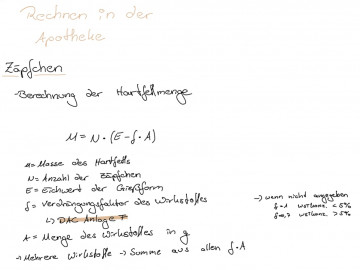 Rechnen in der
Apotheke
Zäpfchen
-Berechnung der Hartfettmenge
M = N · (E - f · A)
M = Masse des Hartfetts
N = Anzahl der Zäpfchen
E = Eichwert der Gießform
f = Verdrängungsfaktor des Wirkstoffes
↳ DAC Anlage F
→ wenn nicht angegeben
f=1 Wstkonz. ≤ 5%
f=0,7 Wstkonz. > 5%
A = Menge des Wirkstoffes in g
→ Mehrere Wirkstoffe → Summe aus allen f · A